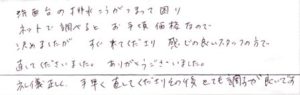 洗面台の排水こうがつまって困り
ネットで調べると お手頃価格なので
決めましたが すぐ来てくださり 感じの良いスタッフの方で
直してくださいました。ありがとうございました。
礼儀正しく 手早く直してくださりその後とても調子が良いです